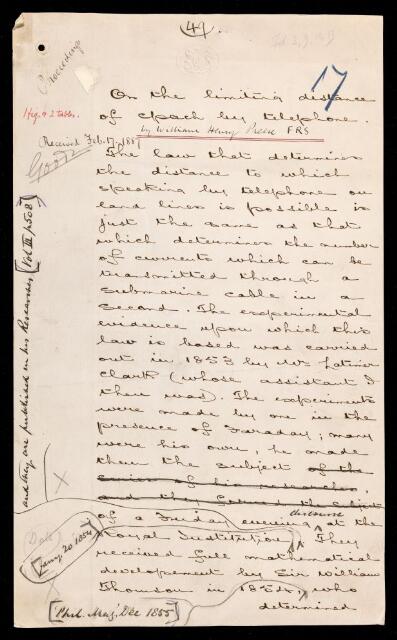 (4)
17
Proceedings
On the limiting distance
of speech by telephone.
by William Henry Preece FRS
Fig. & 2 tables.
Received Feb. 17, 1887
The law that determines
the distance to which
speaking by telephone on
land lines is possible is
just the same as that
which determines the number
of currents which can be
transmitted through a
submarine cable in a
second. The experimental
evidence upon which this
law is based was carried
out in 1853 by Mr Latimer
Clark (whose assistant I
then was). The experiments
were made by me in the
presence of Faraday; many
were his own, he made
them the subject of the
series of his researches,
and they formed the subject
discourse
of a Friday evening at the
Royal Institution. They
received full mathematical
developement by Sir William
Thomson in 1854, who
determined
and they are published in his Researches [Vol III p508]
(Date)
Jany. 20 1854
[Phil. Mag. Dec 1855]